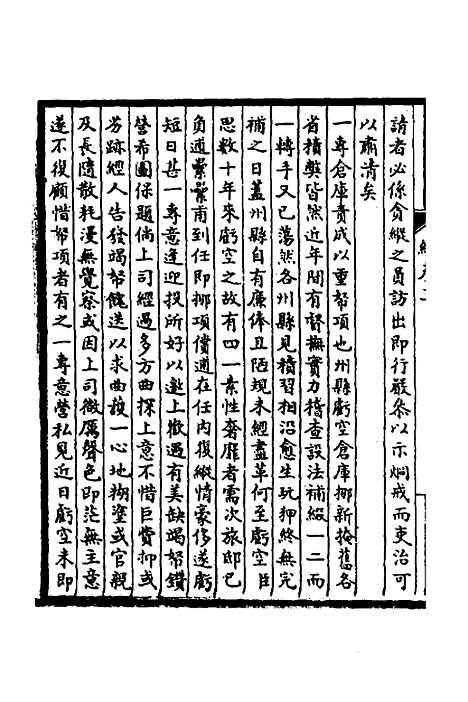 請者必係貪縱之員訪出即行嚴叅以示烱戒而吏治可
以肅清矣
一專倉庫責成以重帑項也州縣虧空倉庫挪新掩舊各
省積獘皆然近年間有督撫實力稽查設法補綴一二而
一轉手又已蕩然各州縣見積習相沿愈生玩狎終無完
補之日蓋州縣自有廉俸且陋規未經盡革何至虧空臣
思數十年來虧空之故有四一素性奢靡者需次旅邸已
負逋纍纍甫到任即挪項償逋在任内復縱情豪侈遂虧
短日甚一專意逢迎投所好以邀上歡遇有美缺竭帑鑽
營希圖保題倘上司經過多方曲探上意不惜巨費抑或
劣跡經人告發竭帑餽送以求曲護一心地糊塗或官親
及長隨散耗漫無覺察或因上司微厲聲色即茫無主意
遂不復顧惜帑項者有之一專意營私見近日虧空未即